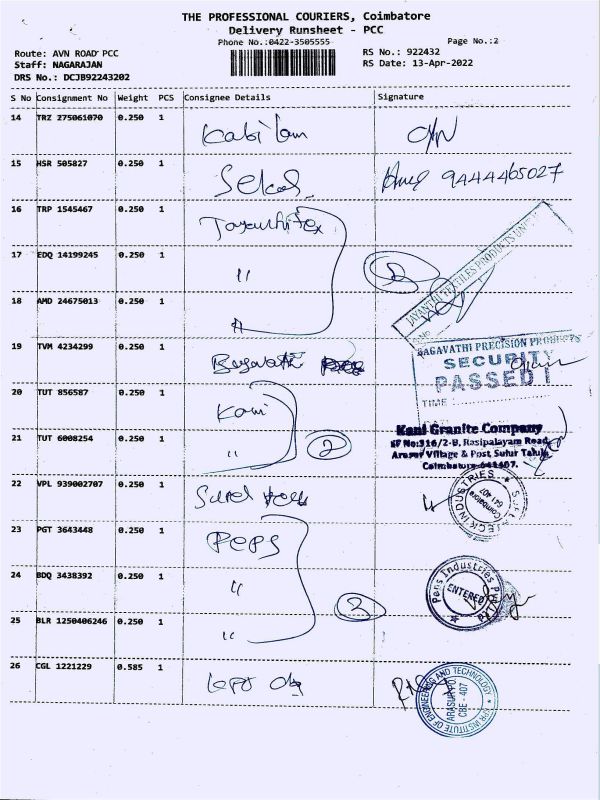 THE PROFESSIONAL COURIERS, Coimbatore
Delivery Runsheet - PCC
Phone No.:0422-3505555
Page No.:2
Route: AVN ROAD PCC
Staff: NAGARAJAN
DRS No.: DCJB92243202
RS No.: 922432
RS Date: 13-Apr-2022
S No Consignment No Weight PCS Consignee Details Signature
14 TRZ 275061070 0.250 1
15 HSR 505827 0.250 1 9444465027
16 TRP 1545467 0.250 1
17 EDQ 14199245 0.250 1 "
JAYANTHI TEXTILES PRODUCTS
18 AMD 24675013 0.250 1
19 TVM 4234299 0.250 1 Bagavathi
BAGAVATHI PRECISION PRODUCTS
SECURITY
PASSED
TIME
20 TUT 856587 0.250 1 Kani
21 TUT 6008254 0.250 1 " 2
Kani Granite Company
SF No:316/2-B, Rasipalayam Road,
Arasur Village & Post, Sulur Taluk,
Coimbatore-641407.
22 VPL 939002707 0.250 1
INDUSTRIES
Coimbatore
641 407
23 PGT 3643448 0.250 1 Peps
24 BDQ 3438392 0.250 1 "
Peps Industries
ENTERED
25 BLR 1250406246 0.250 1 " 3
26 CGL 1221229 0.585 1
KPR INSTITUTE OF ENGINEERING AND TECHNOLOGY
ARASUR PO
CBE - 407